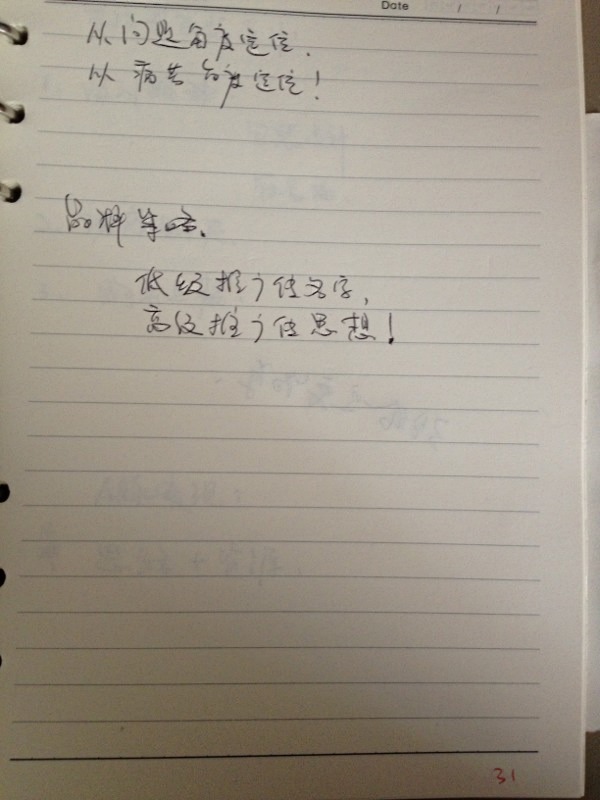 Date / /
从问题角度定位.
从病苦角度定位!
品牌策略.
低级推广传名字,
高级推广传思想!
31